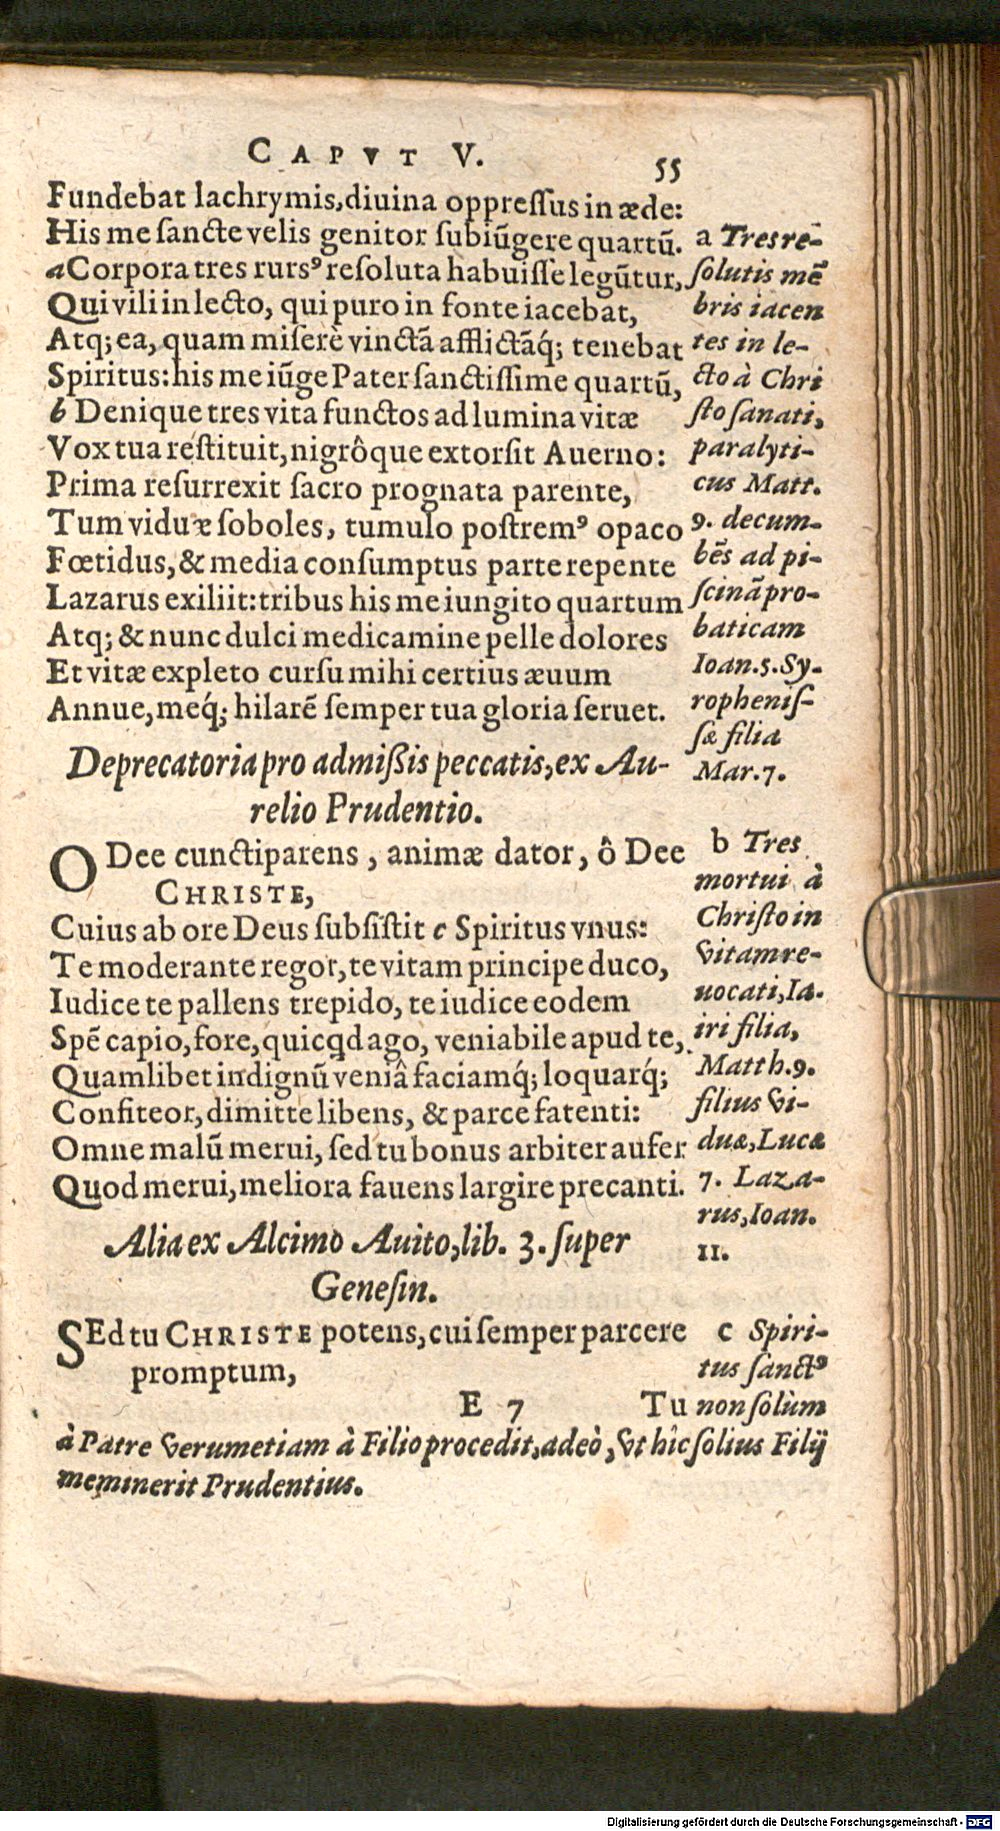 CAPVT V.
55
Fundebat lachrymis, diuina oppreſſus in æde:
His me ſancte velis genitor ſubiũgere quartũ.
a Corpora tres rursꝰ reſoluta habuiſſe legũtur,
Qui vili in lecto, qui puro in fonte iacebat,
Atq; ea, quam miſerè vinctã afflictãq́; tenebat
Spiritus: his me iũge Pater ſanctiſſime quartũ,
b Denique tres vita functos ad lumina vitæ
Vox tua reſtituit, nigrôque extorſit Auerno:
Prima reſurrexit ſacro prognata parente,
Tum viduæ ſoboles, tumulo poſtremꝰ opaco
Fœtidus, & media conſumptus parte repente
Lazarus exiliit: tribus his me iungito quartum
Atq; & nunc dulci medicamine pelle dolores
Et vitæ expleto curſu mihi certius æuum
Annue, meq́; hilarẽ ſemper tua gloria ſeruet.
a Tres re-
ſolutis mẽ
bris iacen
tes in le-
cto à Chri
ſto ſanati,
paralyti-
cus Matt.
9. decum-
bẽs ad pi-
ſcinã pro-
baticam
Ioan. 5. Sy-
ropheniſ-
ſæ filia
Mar. 7.
Deprecatoria pro admißis peccatis, ex Au-
relio Prudentio.
O Dee cunctiparens, animæ dator, ô Dee
CHRISTE,
Cuius ab ore Deus ſubſiſtit c Spiritus vnus:
Te moderante regor, te vitam principe duco,
Iudice te pallens trepido, te iudice eodem
Spẽ capio, fore, quicqd ago, veniabile apud te,
Quamlibet indignũ veniâ faciamq́; loquarq́;
Confiteor, dimitte libens, & parce fatenti:
Omne malũ merui, ſed tu bonus arbiter aufer
Quod merui, meliora fauens largire precanti.
b Tres
mortui à
Chriſto in
vitam re-
uocati, Ia-
iri filia,
Matth. 9.
filius vi-
duæ, Lucæ
7. Laza-
rus, Ioan.
11.
Alia ex Alcimo Auito, lib. 3. ſuper
Geneſin.
SEd tu CHRISTE potens, cui ſemper parcere
promptum,
E 7
Tu
c Spiri-
tus ſanctꝰ
non ſolùm
à Patre verumetiam à Filio procedit, adeò, vt hîc ſolius Filij
meminerit Prudentius.
Digitalisierung gefördert durch die Deutsche Forschungsgemeinschaft - DFG